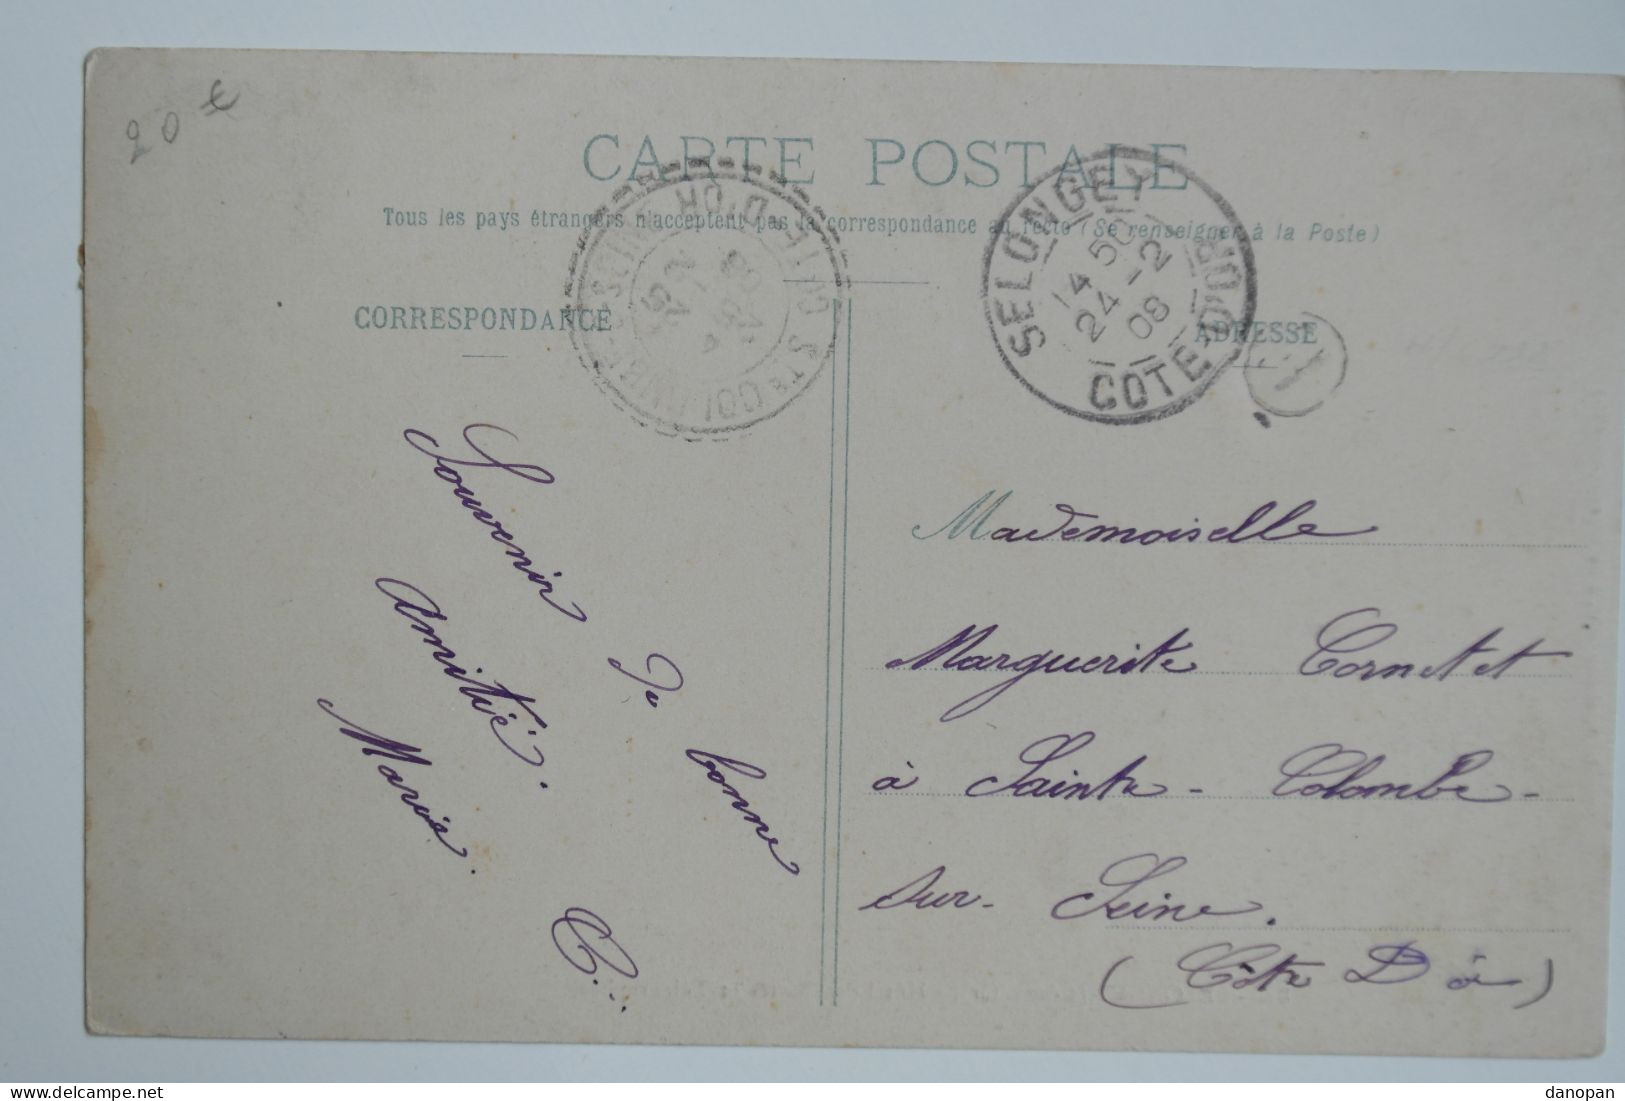 20 €
CARTE POSTALE
Tous les pays étrangers n'acceptent pas la correspondance au recto (Se renseigner à la Poste)
CORRESPONDANCE
ADRESSE
STE COLOMBE-S-SEINE
COTE D'OR
SELONGEY
14 50
24 -2
08
COTE-D'OR
Souvenir de bonne
amitié.
Marie C...
Mademoiselle
Marguerite Cornetet
à Sainte-Colombe-
sur-Seine.
(Côte D'or)
delcampe.net
danopan